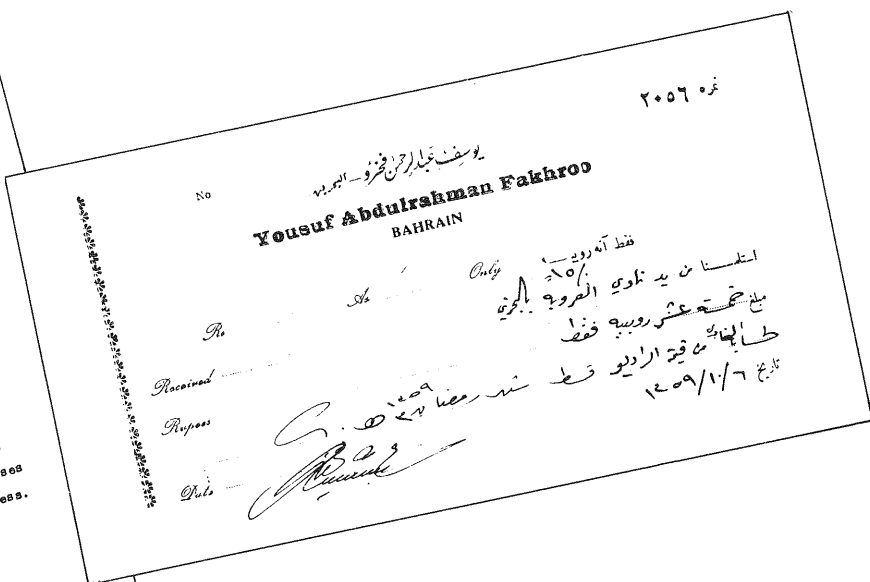 نمرة ٢٠٥٦
No
يوسف عبدالرحمن فخرو - البحرين
Yousuf Abdulrahman Fakhroo
BAHRAIN
فقط آنه روبية
Rs As Only ١٥/
Received استلمنا من يد نادي العروبه بالبحرين
Rupees مبلغ خمسة عشر روبيه فقط
من قيمة الراديو قسط شهر رمضان ١٣٥٩ هـ
Date تاريخ ١٣٥٩/١٠/٦
ses
ess.